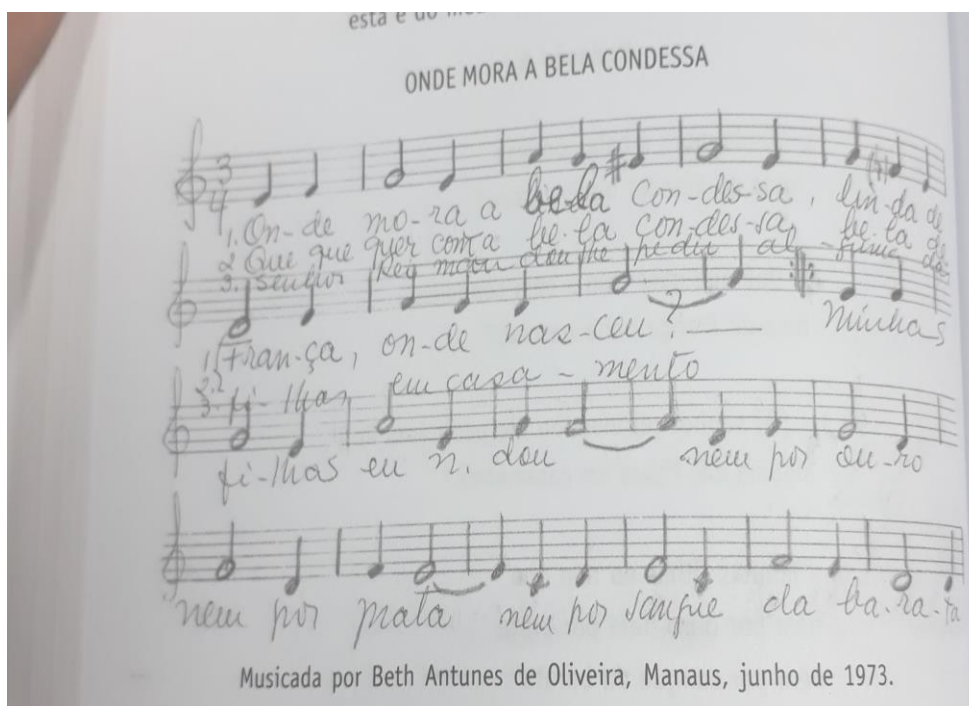 ONDE MORA A BELA CONDESSA
3
4
1. On-de mo-ra a be-la con-des-sa, lin-da de
2. Que que quer com a be-la con-des-sa, be-la de
3. Senhor Rey mandou lhe pedir
1. Fran-ça, on-de nas-ceu? Minhas
3. fi-lhas em casa-mento
fi-lhas eu n. dou nem por ou-ro
nem por prata nem por sangue da ba-ra-ta
Musicada por Beth Antunes de Oliveira, Manaus, junho de 1973.